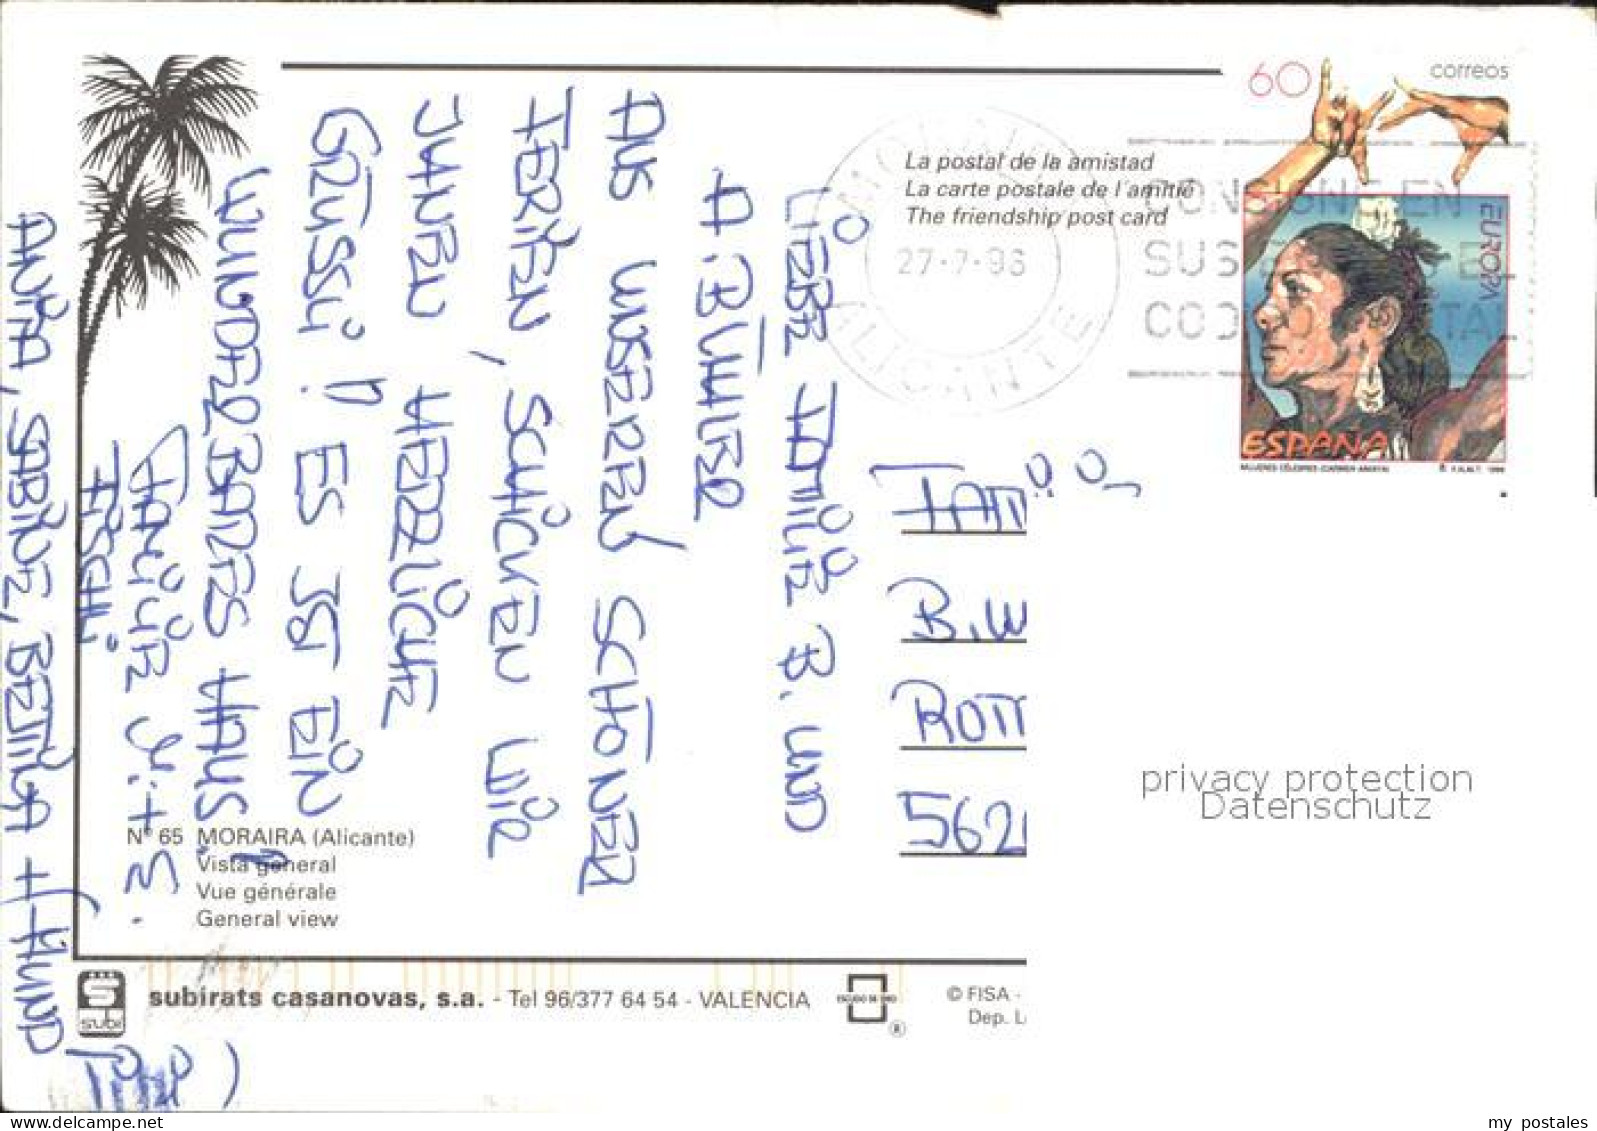 60 correos
EUROPA
ESPAÑA
MUJERES CÉLEBRES (CARMEN AMAYA) F.N.M.T. 1996
La postal de la amistad
La carte postale de l'amitié
The friendship post card
MORAIRA
27-7-96
ALICANTE
CONSIGNE EN
SUS
LIEBE FAMILIE B. UND
A. BÜHLER
AUS UNSEREN SCHÖNEN
FERIEN, SCHICKEN WIR
IHNEN HERZLICHE
GRÜSSLI! ES IST EIN
WUNDERBARES HAUS!
FAMILIE
FISCHLI
ANITA, SABINE, BETTINA + HUND
FAM
B. W
ROTT
562
privacy protection
Datenschutz
N° 65 MORAIRA (Alicante)
Vista general
Vue générale
General view
subi
subirats casanovas, s.a. - Tel 96/377 64 54 - VALENCIA
ESCUDO DE ORO
®
© FISA -
Dep. L
my postales